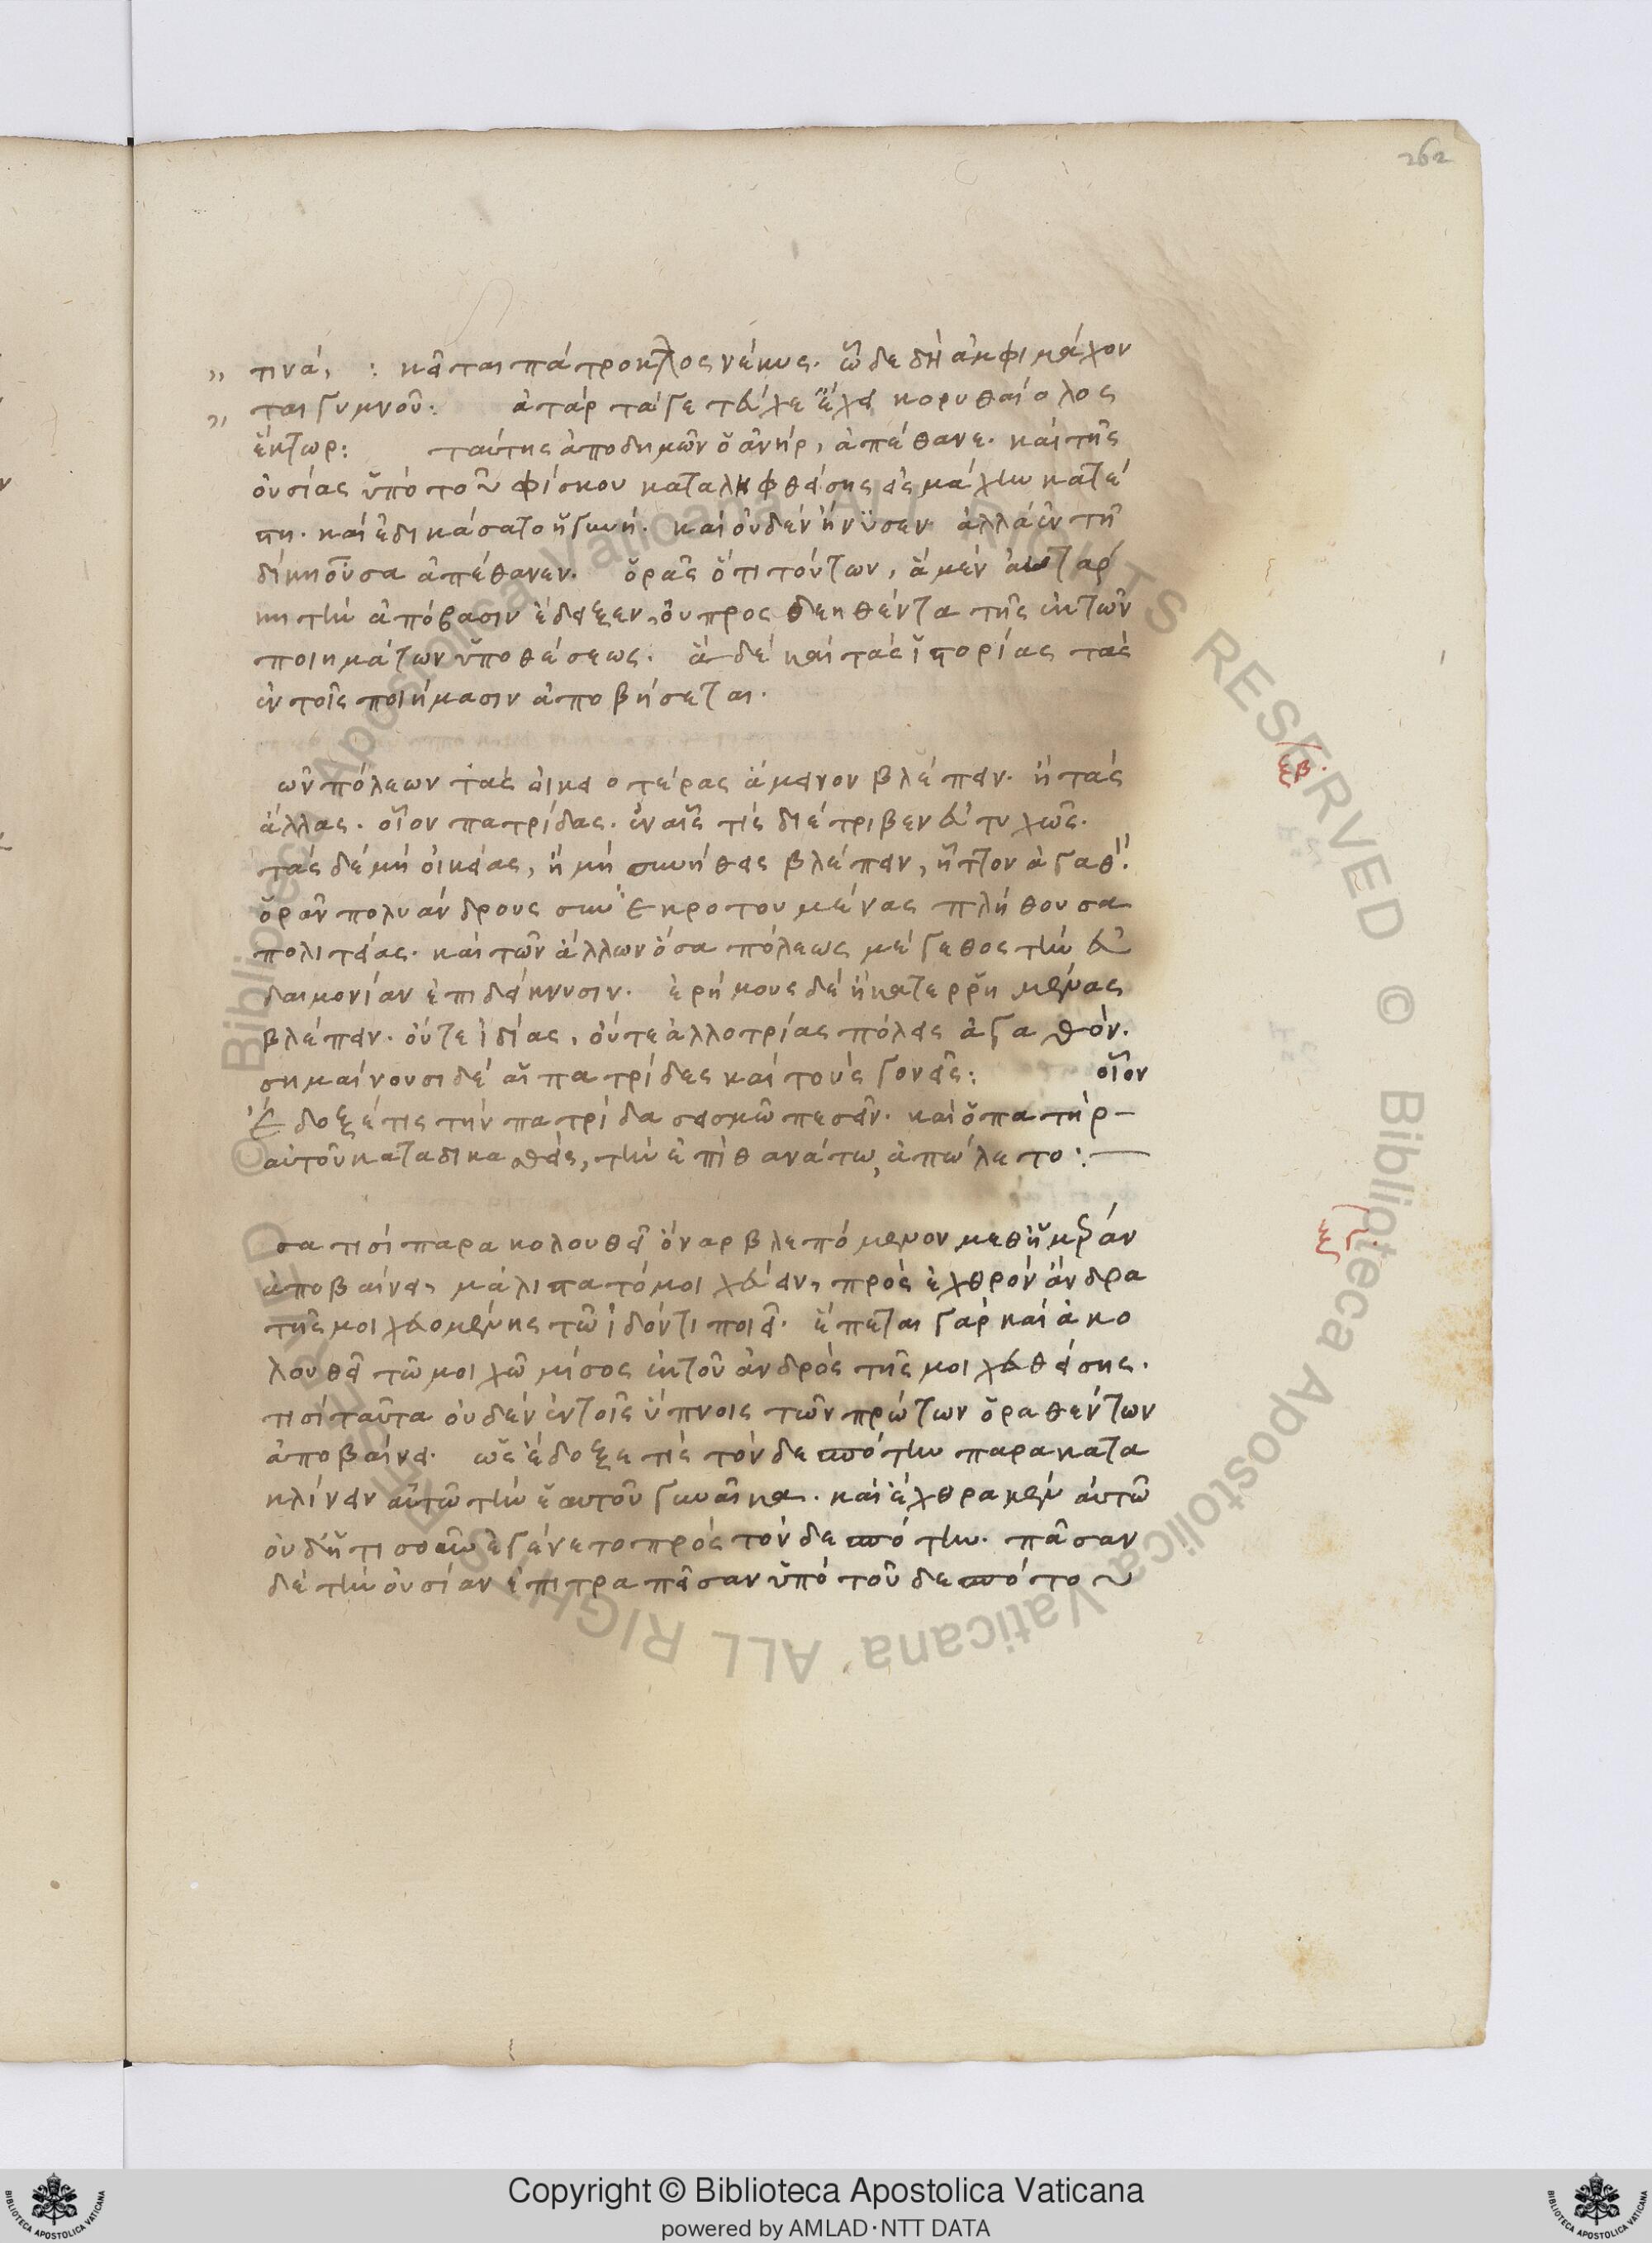 262
" τινά, : κεῖται πάτροκλος νέκυς. ὥδε δὴ ἀμφιμάχον
" ται γυμνοῦ: ἀτὰρ τάγε τεύχε ἔχει κορυθαίολος
ἕκτωρ: ταύτης ἀποδημῶν ὁ ἀνήρ, ἀπέθανε. καὶ τῆς
οὐσίας ὑπὸ τοῦ φίσκου καταληφθείσης εἰς μάχην κατέ
στη. καὶ ἐδικάσατο ἡ γυνή. καὶ οὐδὲν ἤνυσεν ἀλλὰ ἐν τῆ
δίκη οὖσα ἀπέθανεν. ὁρᾶς ὅτι τούτων, ἃ μὲν αὐτάρ
κη τὴν ἀπόβασιν ἔδειξεν, οὐ προσδεηθέντα τῆς ἐκ τῶν
ποιημάτων ὑποθέσεως. ἃ δὲ καὶ τὰς ἱστορίας τὰς
ἐν τοῖς ποιήμασιν ἀποβήσεται.
ξβ.
ῶν πόλεων τὰς οἰκειοτέρας ἄμεινον βλέπειν. ἢ τὰς
ἄλλας. οἷον πατρίδας. ἐν αἷς τὶς διέτριβεν εὐτυχῶς.
τὰς δὲ μὴ οἰκείας, ἢ μὴ συνήθεις βλέπειν, ἧττον ἀγαθ".
ὁρᾶν πολυάνδρους συγκροτουμένας πλήθουσα
πολιτείας. καὶ τῶν ἄλλων ὅσα πόλεως μέγεθος τὴν εὐ
δαιμονίαν ἐπιδείκνυσιν. ἐρήμους δὲ ἢ κατερρημένας
βλέπειν. οὔτε ἰδίας, οὔτε ἀλλοτρίας πόλεις ἀγαθόν.
σημαίνουσι δὲ αἱ πατρίδες καὶ τοὺς γονεῖς: οἷον
ἔδοξέ τις τὴν πατρίδα σεισμῶ πεσεῖν. καὶ ὁ πατὴρ –
αὐτοῦ καταδικασθεὶς, τὴν ἐπὶ θανάτω, ἀπώλετο: —
ξγ.
σα τισὶ παρακολουθεῖ ὄναρ βλεπόμενον μεθ' ἡμέραν
ἀποβαίνει, μάλιστα τὸ μοιχεύειν, πρὸς ἐχθρὸν ἄνδρα
τῆς μοιχευομένης τῶ ἰδόντι ποιεῖ. ἕπεται γὰρ καὶ ἀκο
λουθεῖ τῶ μοιχῶ μῖσος ἐκ τοῦ ἀνδρὸς τῆς μοιχευθείσης.
τισὶ ταῦτα οὐδὲν ἐν τοῖς ὕπνοις τῶν πρώτων ὁραθέντων
ἀποβαίνει. ὡς ἔδοξε τὶς τὸν δεσπότην παρακατα
κλίνειν αὐτῶ τὴν ἑαυτοῦ γυναῖκα. καὶ ἔχθρα μὲν αὐτῶ
οὐδ' ἡτισοῦν ἐγένετο πρὸς τὸν δεσπότην. πᾶσαν
δὲ τὴν οὐσίαν ἐπιτραπεῖσαν ὑπὸ τοῦ δεσπότου
Copyright © Biblioteca Apostolica Vaticana
powered by AMLAD·NTT DATA